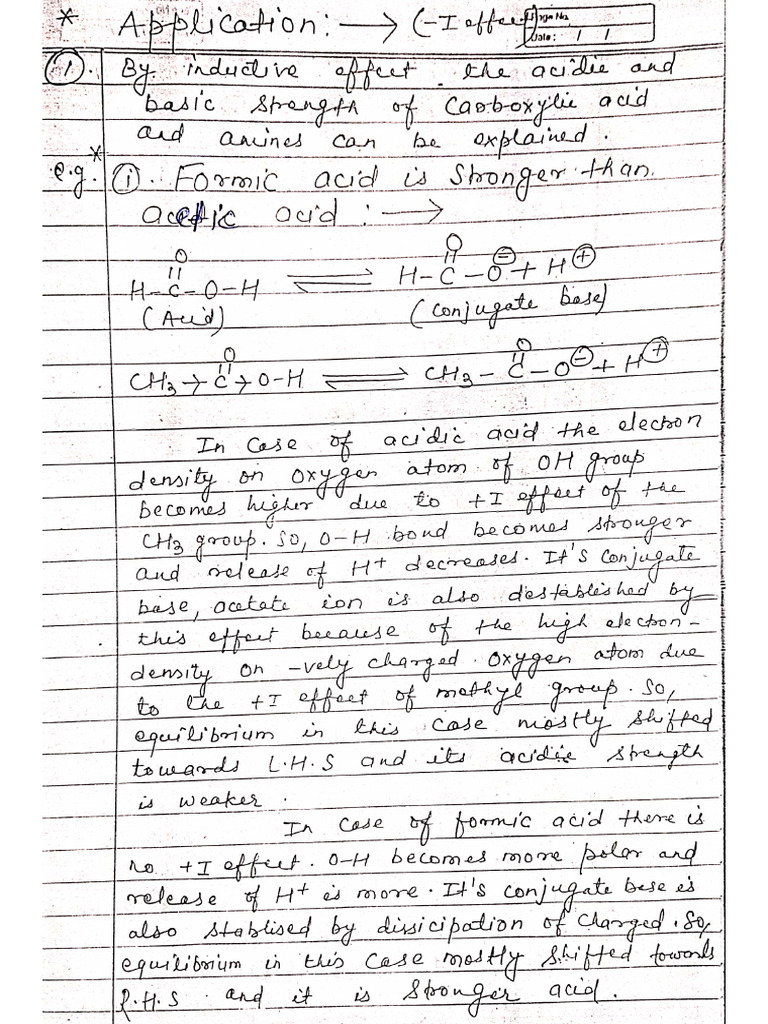 * Application: → (-I effect)
Page No.
Date: / /
①. By inductive effect the acidic and
basic strength of Carboxylic acid
and amines can be explained.
e.g.* ① Formic acid is stronger than
acetic acid : →
O O
H-C-O-H ⇌ H-C-O⊖ + H⊕
(Acid) (conjugate base)
O O
CH3→C→O-H ⇌ CH3-C-O⊖ + H⊕
In case of acidic acid the electron
density on oxygen atom of OH group
becomes higher due to +I effect of the
CH3 group. So, O-H bond becomes stronger
and release of H+ decreases. It's conjugate
base, acetate ion is also destablished by
this effect because of the high electron-
density on -vely charged oxygen atom due
to the +I effect of methyl group. So,
equilibrium in this case mostly shifted
towards L.H.S and its acidic strength
is weaker.
In case of formic acid there is
no +I effect. O-H becomes more polar and
release of H+ is more. It's conjugate base is
also stablised by dissicipation of charged. So,
equilibrium in this case mostly shifted towards
R.H.S and it is stronger acid.